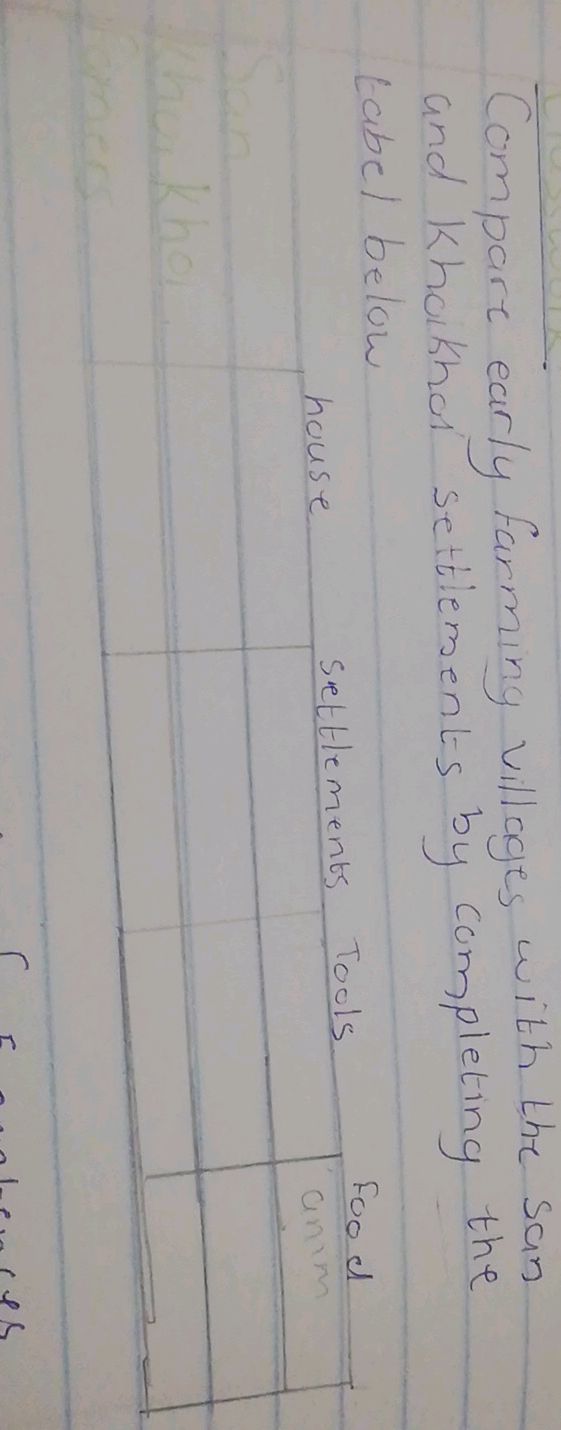 Compare early farming villages with the San
and Khoikhoi settlements by completing the
tabel below
house settlements Tools Food
San anim
Khoikhoi
Famers